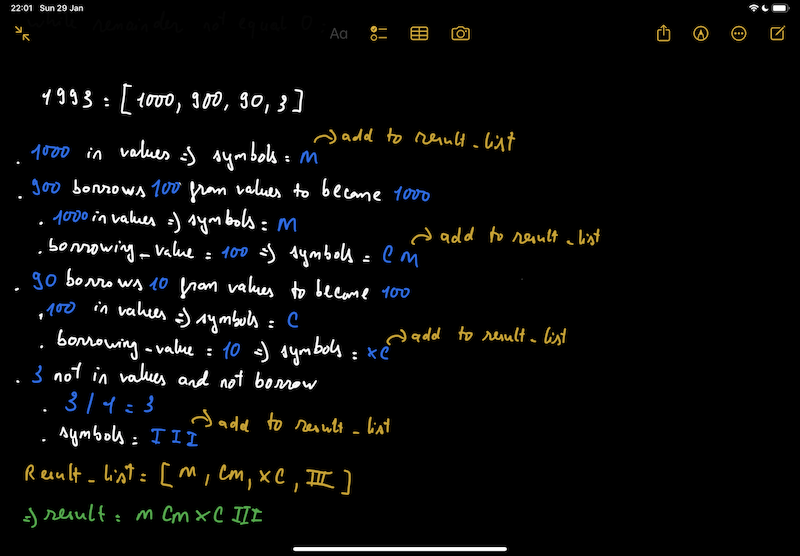 22:01 Sun 29 Jan
while remainder not equal 0
Aa
1993 = [1000, 900, 90, 3]
. 1000 in values => symbols = M → add to result_list
. 900 borrows 100 from values to become 1000
. 1000 in values => symbols = M
. borrowing_value = 100 => symbols = CM → add to result_list
. 90 borrows 10 from values to become 100
. 100 in values => symbols = C
. borrowing_value = 10 => symbols = XC → add to result_list
. 3 not in values and not borrow
. 3 / 1 = 3
. symbols = III → add to result_list
Result_list = [M, CM, XC, III]
=> result = M CM XC III